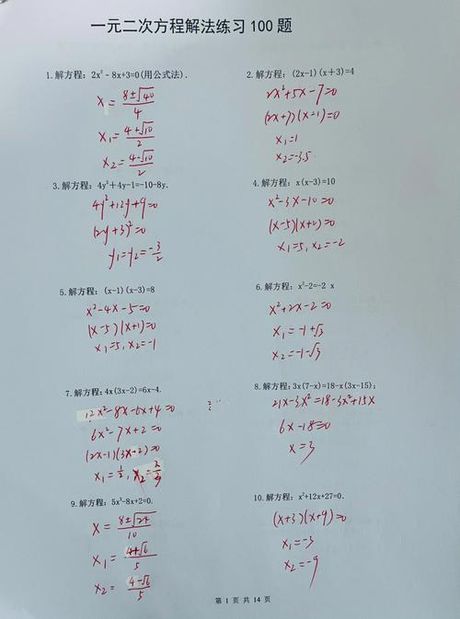 一元二次方程解法练习100题
1.解方程：2x²-8x+3=0(用公式法).
x=(8±√40)/4
x₁=(4+√10)/2
x₂=(4-√10)/2
2.解方程：(2x-1)(x+3)=4
2x²+5x-7=0
(2x+7)(x-1)=0
x₁=1
x₂=-3.5
3.解方程：4y²+4y-1=-10-8y.
4y²+12y+9=0
(2y+3)²=0
y₁=y₂=-3/2
4.解方程：x(x-3)=10
x²-3x-10=0
(x-5)(x+2)=0
x₁=5, x₂=-2
5.解方程：(x-1)(x-3)=8
x²-4x-5=0
(x-5)(x+1)=0
x₁=5, x₂=-1
6.解方程：x²-2=-2 x
x²+2x-2=0
x₁=-1+√3
x₂=-1-√3
7.解方程：4x(3x-2)=6x-4.
12x²-8x-6x+4=0
6x²-7x+2=0
(2x-1)(3x-2)=0
x₁=1/2, x₂=2/3
8.解方程：3x(7-x)=18-x(3x-15);
21x-3x²=18-3x²+15x
6x-18=0
x=3
9.解方程：5x²-8x+2=0.
x=(8±√24)/10
x₁=(4+√6)/5
x₂=(4-√6)/5
10.解方程：x²+12x+27=0.
(x+3)(x+9)=0
x₁=-3
x₂=-9
第 1 页 共 14 页